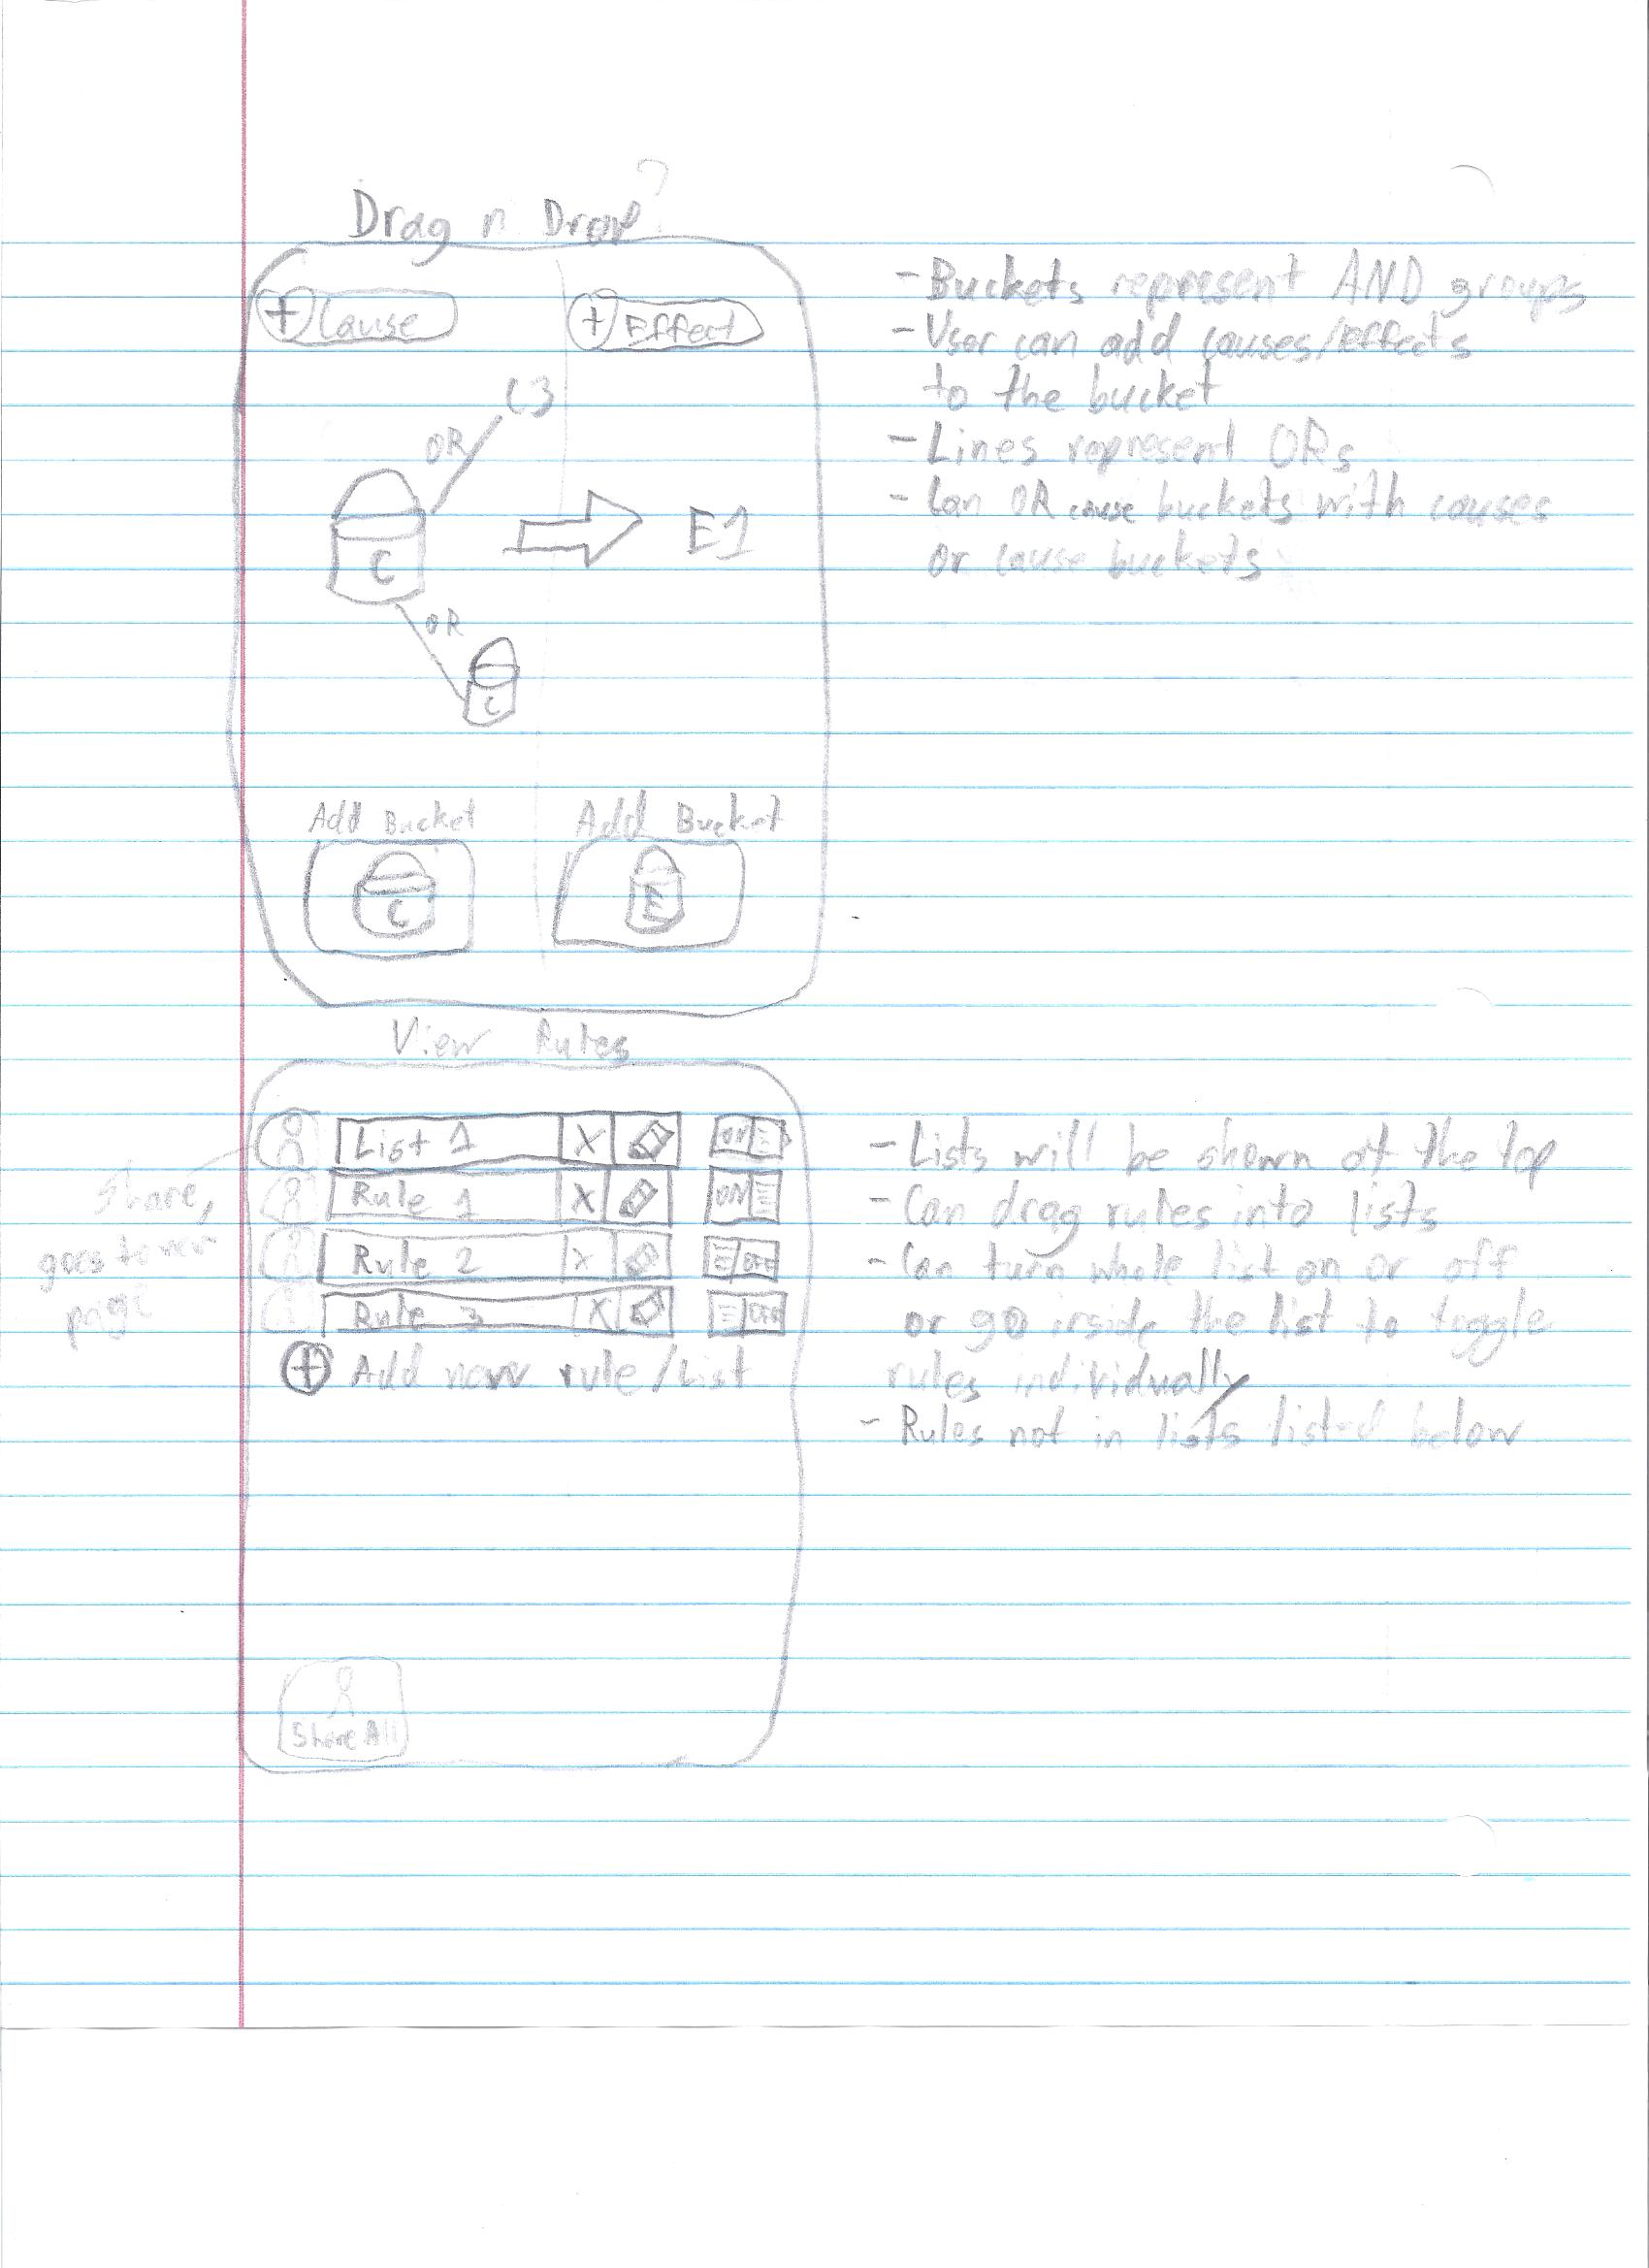 Drag n Drop?
+ Cause
+ Effect
C3
OR
C
E1
OR
C
Add Bucket
Add Bucket
C
E
- Buckets represent AND groups
- User can add causes/effects
to the bucket
- Lines represent ORs
- Can OR cause buckets with causes
or cause buckets
View Rules
List 1 X ON
Rule 1 X ON
Rule 2 X OFF
Rule 3 X OFF
+ Add new rule/List
Share,
goes to new
page
Share All
- Lists will be shown at the top
- Can drag rules into lists
- Can turn whole list on or off
or go inside the list to toggle
rules individually
- Rules not in lists listed below